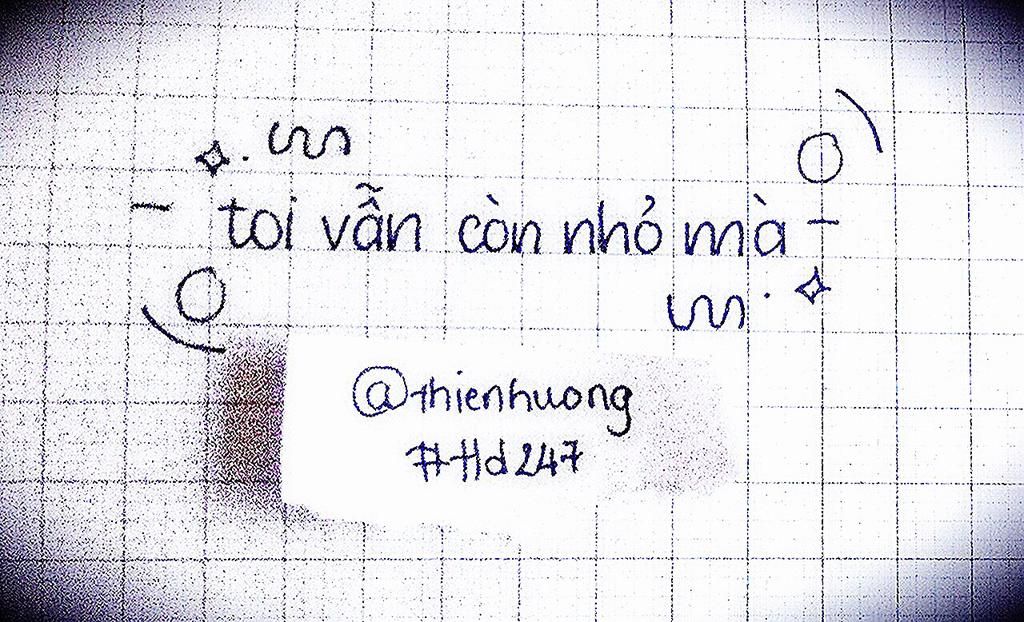 toi vẫn còn nhỏ mà
@thienhuong
#Hd247